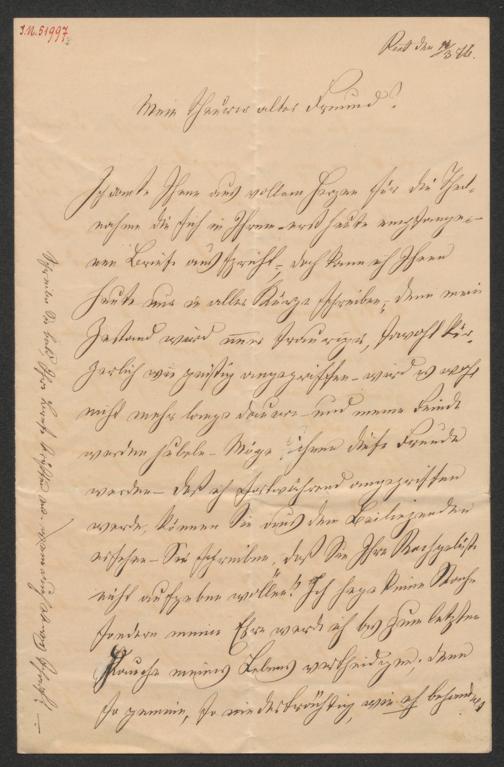 I.N. 51997
Riet den 14/3 86.
Mein theurer alter Freund!
Ich danke Ihnen aus vollem Herzen für die Theil-
nahme die sich in Ihrem erst heute empfange-
nen Briefe ausspricht, doch kann ich Ihnen
heute nur in aller Kürze schreiben, denn mein
Zustand wird immer trauriger, sowohl kör-
perlich wie geistig angegriffen – wird es wohl
nicht mehr lange dauern – und meine Feinde
werden jubeln – Möge ihnen diese Freude
werden – daß ich fortwährend angegriffen
werde, können Sie aus dem Beiliegenden
ersehen – Sie schreiben, daß Sie Ihre Rachgelüste
nicht aufgeben wollen! Ich hege keine Rache
sondern meine Ehre werde ich bis zum letzten
Hauche meines Lebens vertheidigen, denn
so gemein, so niederträchtig, wie ich behandelt
Schreiben Sie bald Ihre Briefe